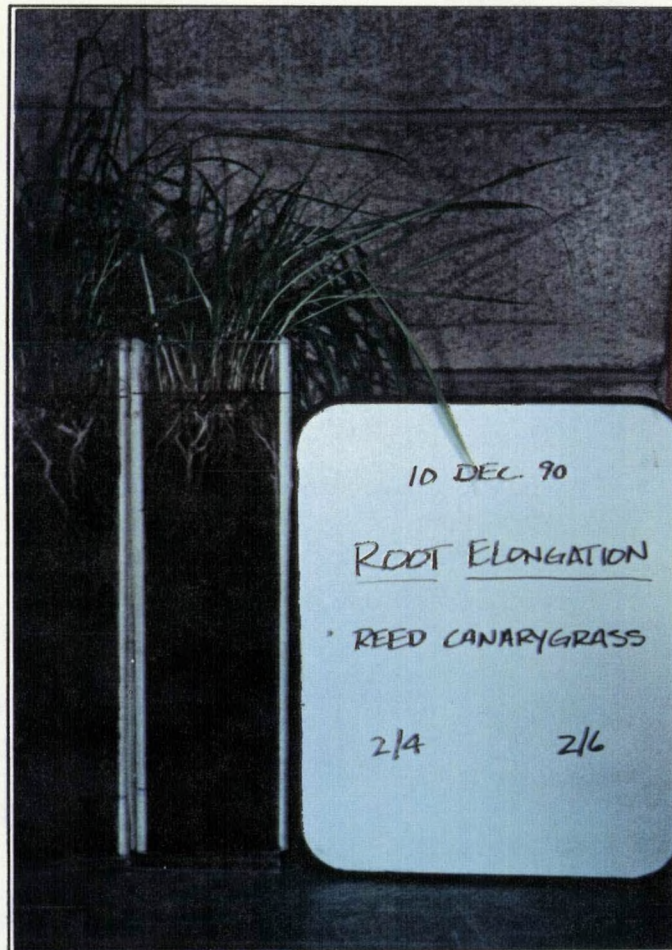 10 DEC. 90
ROOT ELONGATION
REED CANARYGRASS
2/4 2/6